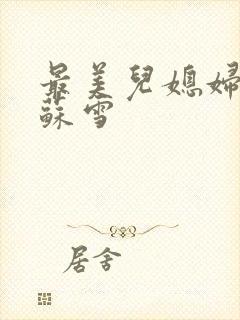 最美兒媳婦
蘇雪
居舍